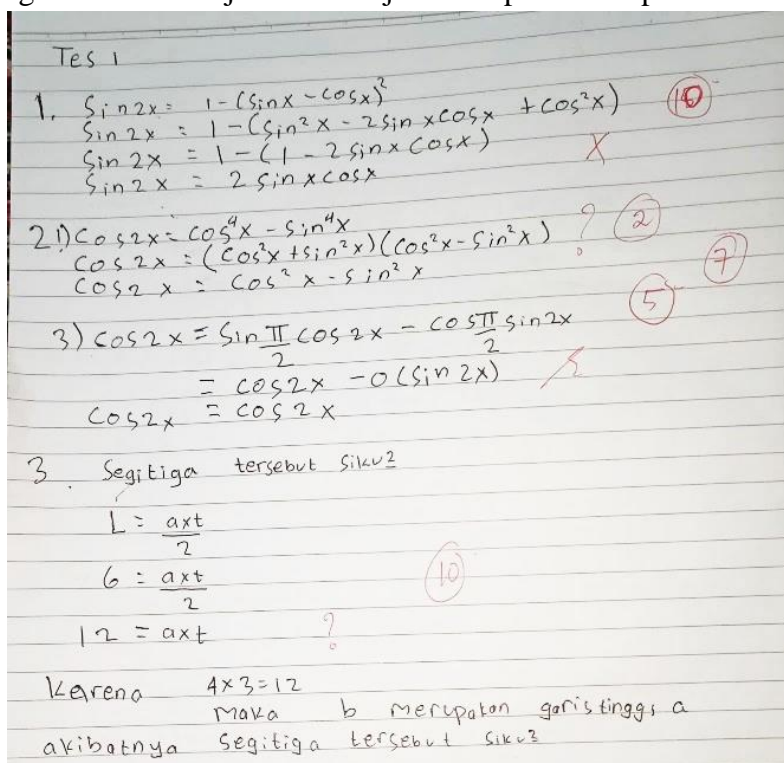 Tes 1
1. Sin2x = 1-(sinx-cosx)²
Sin 2x = 1-(sin²x - 2sin xcosx + cos²x) 10
Sin 2x = 1-(1-2sinx cosx) X
Sin 2x = 2 sinxcosx
2 1) cos2x = cos⁴x - sin⁴x ? 2
cos 2x = (cos²x + sin²x)(cos²x - sin²x)
cos2 x = cos² x - sin² x 7
3) cos2x = sin π/2 cos 2x - cos π/2 sin 2x 5
= cos2x - 0(sin 2x)
cos2x = cos 2x
3. Segitiga tersebut siku2
L = axt/2
6 = axt/2 10
12 = axt ?
Karena 4x3=12
maka b merupakan garis tinggi a
akibatnya segitiga tersebut siku2